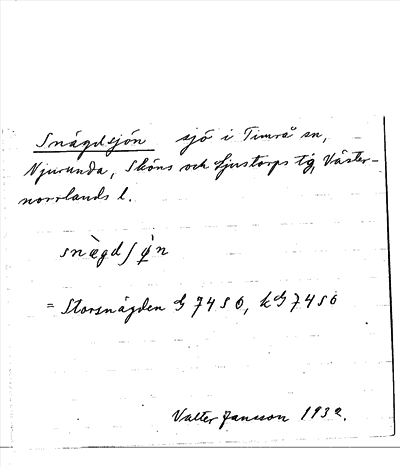 Snägdsjön sjö i Timrå sn,
Njurunda, Sköns och Ljustorps tg, Väster-
norrlands l.
snæ̀gdʃø̀n
= Storsnägden G 7450, kG 7450
Valter Jansson 1932.